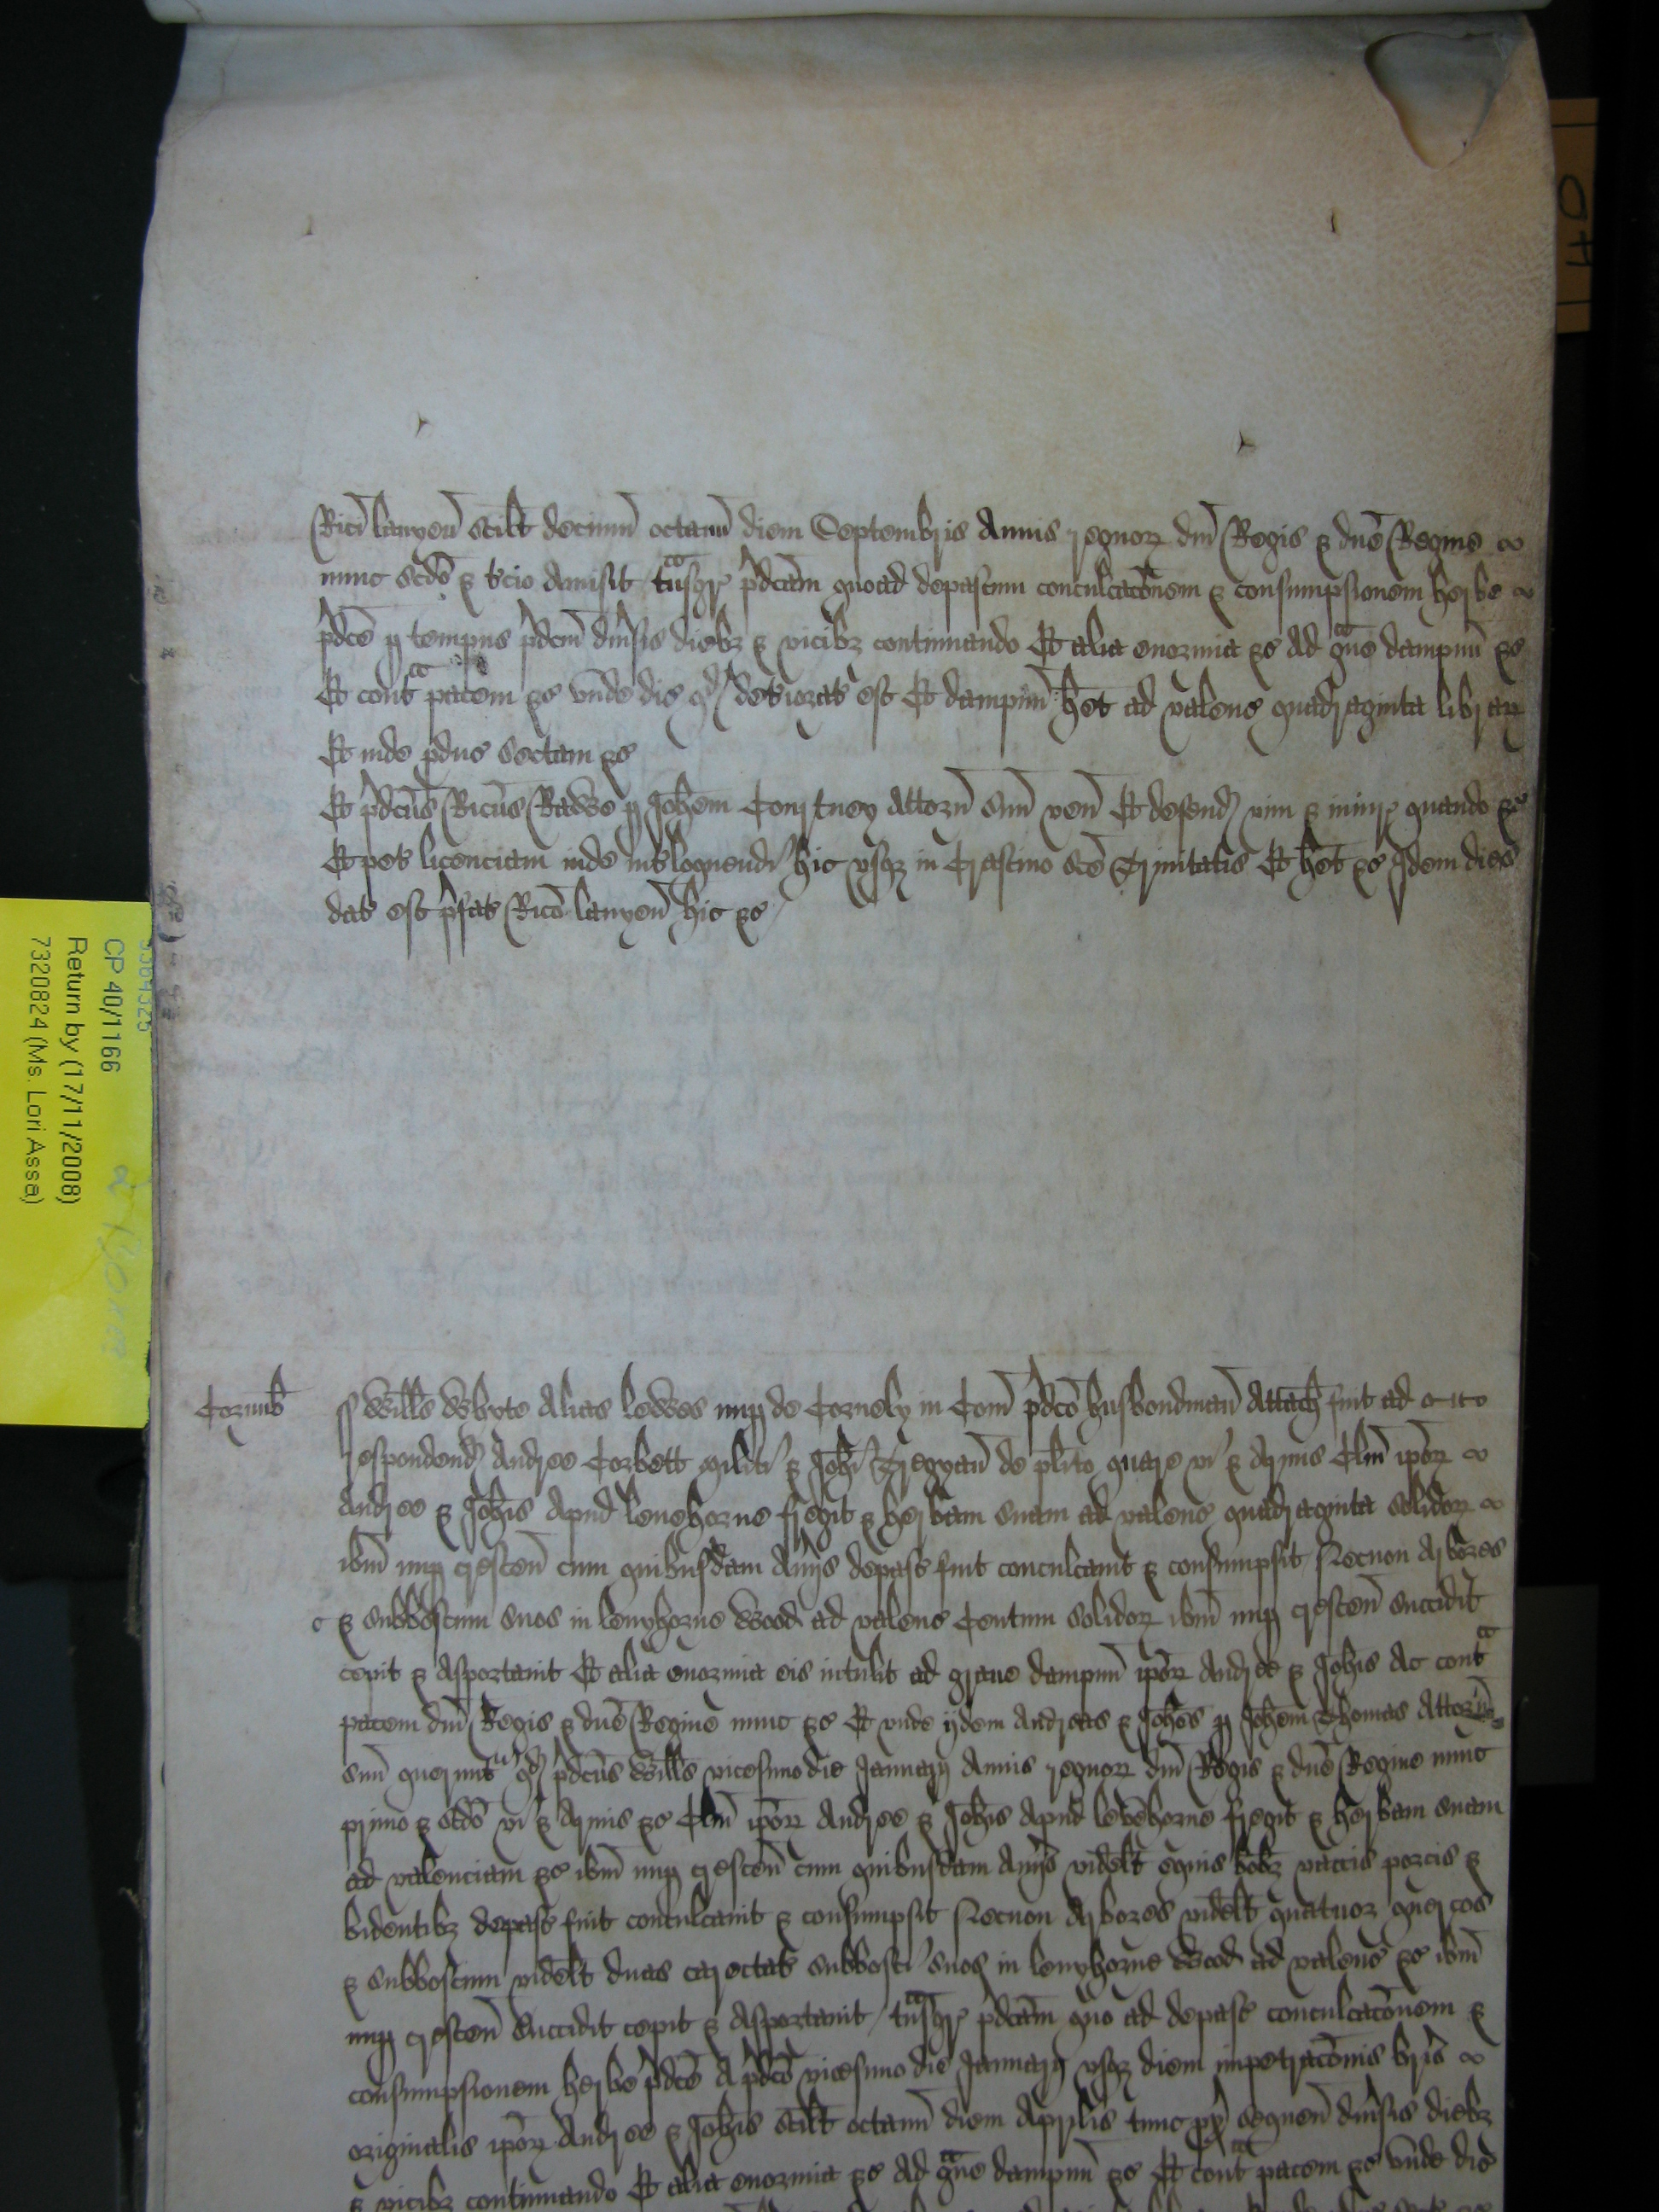 Rici lanyon scilt decimu octavu diem Septembris Annis regnor dni Regis & dne Regine
nunc scdo & tcio Amisit tnsgr pdcam quoad depascum conculcaconem & consumpsionem herbe
pdce p tempus pdcm divsis diebz & vicibz continuando Et alia enormia &c Ad gve dampnu &c
Et cont pacem &c unde dic qd detiorat est Et dampnu het ad valenc quadraginta librar
Et inde pduc sectam &c
Et pdcus Ricus Radwe p Johem Courtney Attorn suu ven Et defend vim & iniur quando &c
Et pet licenciam inde intloquendi hic usqz in Crastino sce Trinitatis Et het &c Idem dies
dat est pfat Rico lanyon hic &c
Cornub
ss Wills Whyte Alias lewes nup de Cornely in Com pdco husbondman Attach fuit ad
respondend Andree Corbett militi & Johi Tregyan de plito quare vi & Armis Clm ipor
Andree & Johis Apud lenehorne fregit & herbam suam ad valenc quadraginta solidor
ibm nup crescen cum quibusdam Aviis depast fuit conculcavit & consumpsit Necnon Arbores
& subboscum suos in lenyhorne Wood ad valenc Centum solidor ibm nup crescen succidit
cepit & Asportavit Et alia enormia eis intulit ad grave dampnu ipor Andree & Johis Ac cont
pacem dni Regis & dne Regine nunc &c Et unde ijdem Andreas & Johes p Johem Thomas Attorn
suu querunt qd pdcus Wills vicesimo die Januarij Annis regnor dni Regis & dne Regine nunc
primo & scdo vi & Armis &c Clm ipor Andree & Johis Apud lenehorne fregit & herbam suam
ad valenciam &c ibm nup crescen cum quibusdam Aviis videlt equis bobz vaccis porcis &
bidentibz depast fuit conculcavit & consumpsit Necnon Arbores videlt quatuor quercos
& subboscum videlt duas carectat subbosci suos in lenyhorne Wood ad valenc &c ibm
nup crescen Succidit cepit & Asportavit tnsgr pdcam quo ad depast conculcaconem &
consumpsionem herbe pdce A pdco vicesimo die Januarij usqz diem impetraconis bris
originalis ipor Andree & Johis scilt octavu diem Aprilis tunc px sequen divsis diebz
& vicibz continuando Et alia enormia &c Ad gve dampnu &c Et cont pacem &c unde dic
CP 40/1166
Return by (17/11/2008)
7320824 (Ms. Lori Assa)